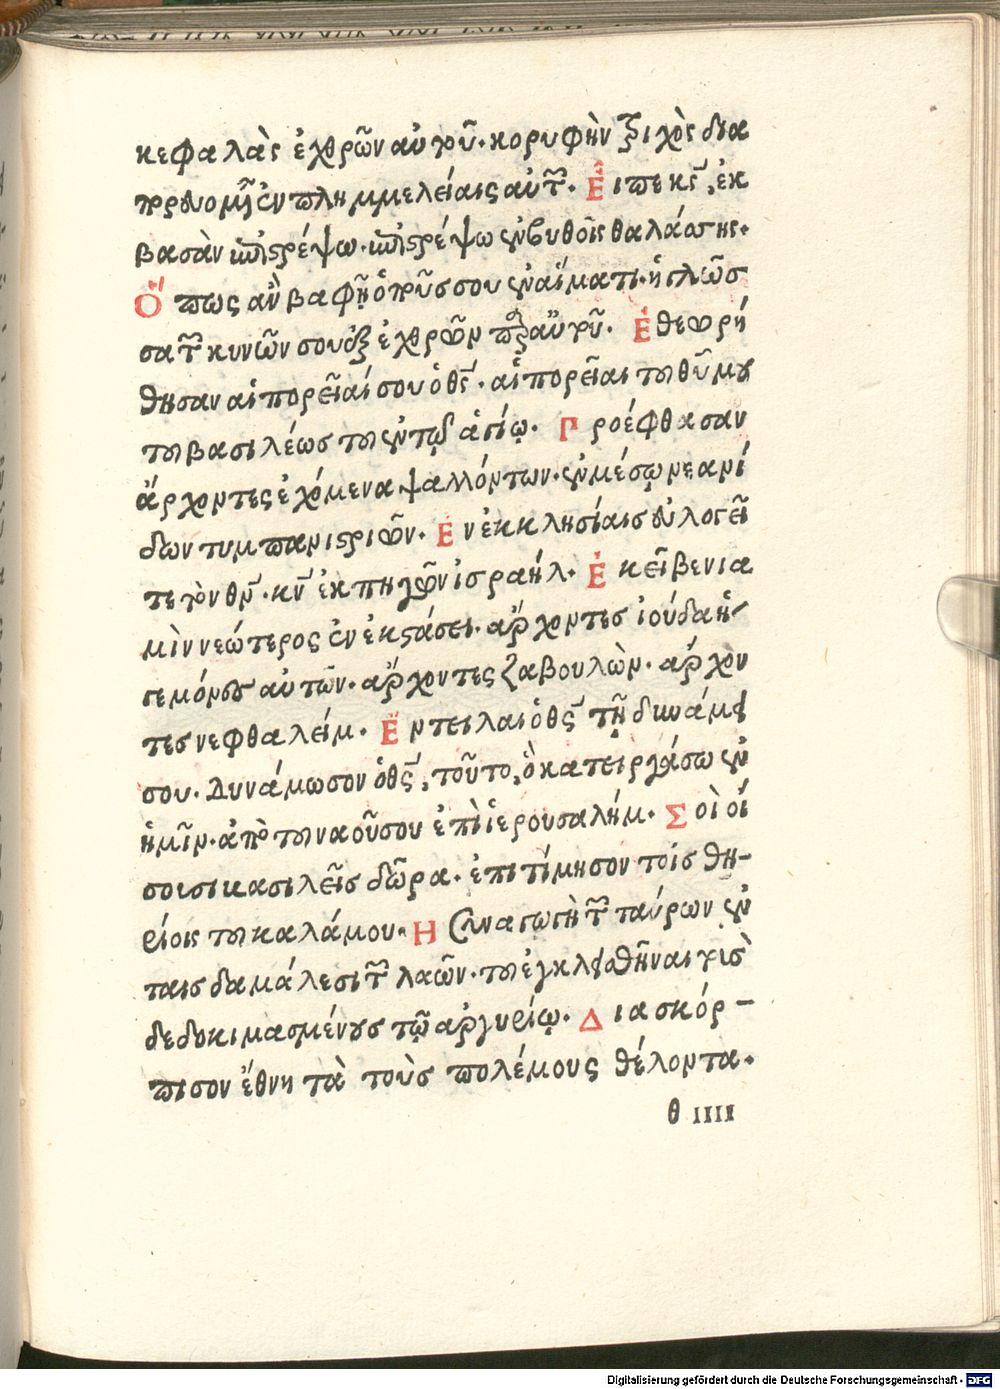 κεφαλὰς ἐχθρῶν αὐτοῦ· κορυφὴν τριχὸς δια
πορευομένων ἐν πλημμελείαις αὐτῶν· Εἶπε κς̄, ἐκ
βασὰν ἐπιστρέψω· ἐπιστρέψω ἐν βυθοῖς θαλάσσης·
Ὅπως ἂν βαφῇ ὁ ποῦς σου ἐν αἵματι· ἡ γλῶσ
σα τῶν κυνῶν σου ἐξ ἐχθρῶν παρ αὐτοῦ· Ἐθεωρή
θησαν αἱ πορεῖαί σου ὁ θς̄· αἱ πορεῖαι τοῦ θῦ μου
τοῦ βασιλέως τοῦ ἐν τῷ ἁγίῳ· Προέφθασαν
ἄρχοντες ἐχόμενα ψαλλόντων· ἐν μέσῳ νεανί
δων τυμπανιστριῶν· Ἐν ἐκκλησίαις εὐλογεῖ
τε τὸν θν̄· κν̄ ἐκ πηγῶν ἰσραήλ· Ἐκεῖ βενια
μὶν νεώτερος ἐν ἐκστάσει· ἄρχοντες ἰούδα ἡ-
γεμόνες αὐτῶν· ἄρχοντες ζαβουλὼν· ἄρχον
τες νεφθαλείμ· Ἔντειλαι ὁ θς̄ τῇ δυνάμει
σου· Δυνάμωσον ὁ θς̄, τοῦτο, ὃ κατειργάσω ἐν
ἡμῖν· ἀπὸ τοῦ ναοῦ σου ἐπὶ ἱερουσαλήμ· Σοὶ οἴ
σουσι βασιλεῖς δῶρα· ἐπιτίμησον τοῖς θη-
ρίοις τοῦ καλάμου· Η συναγωγὴ τῶν ταύρων ἐν
ταις δαμάλεσι τῶν λαῶν· τοῦ ἐγκλεισθῆναι τοὺς
δεδοκιμασμένους τῷ ἀργυρίῳ· Διασκόρ-
πισον ἔθνη τὰ τοὺς πολέμους θέλοντα·
θ ΙΙΙΙ
Digitalisierung gefördert durch die Deutsche Forschungsgemeinschaft - DFG